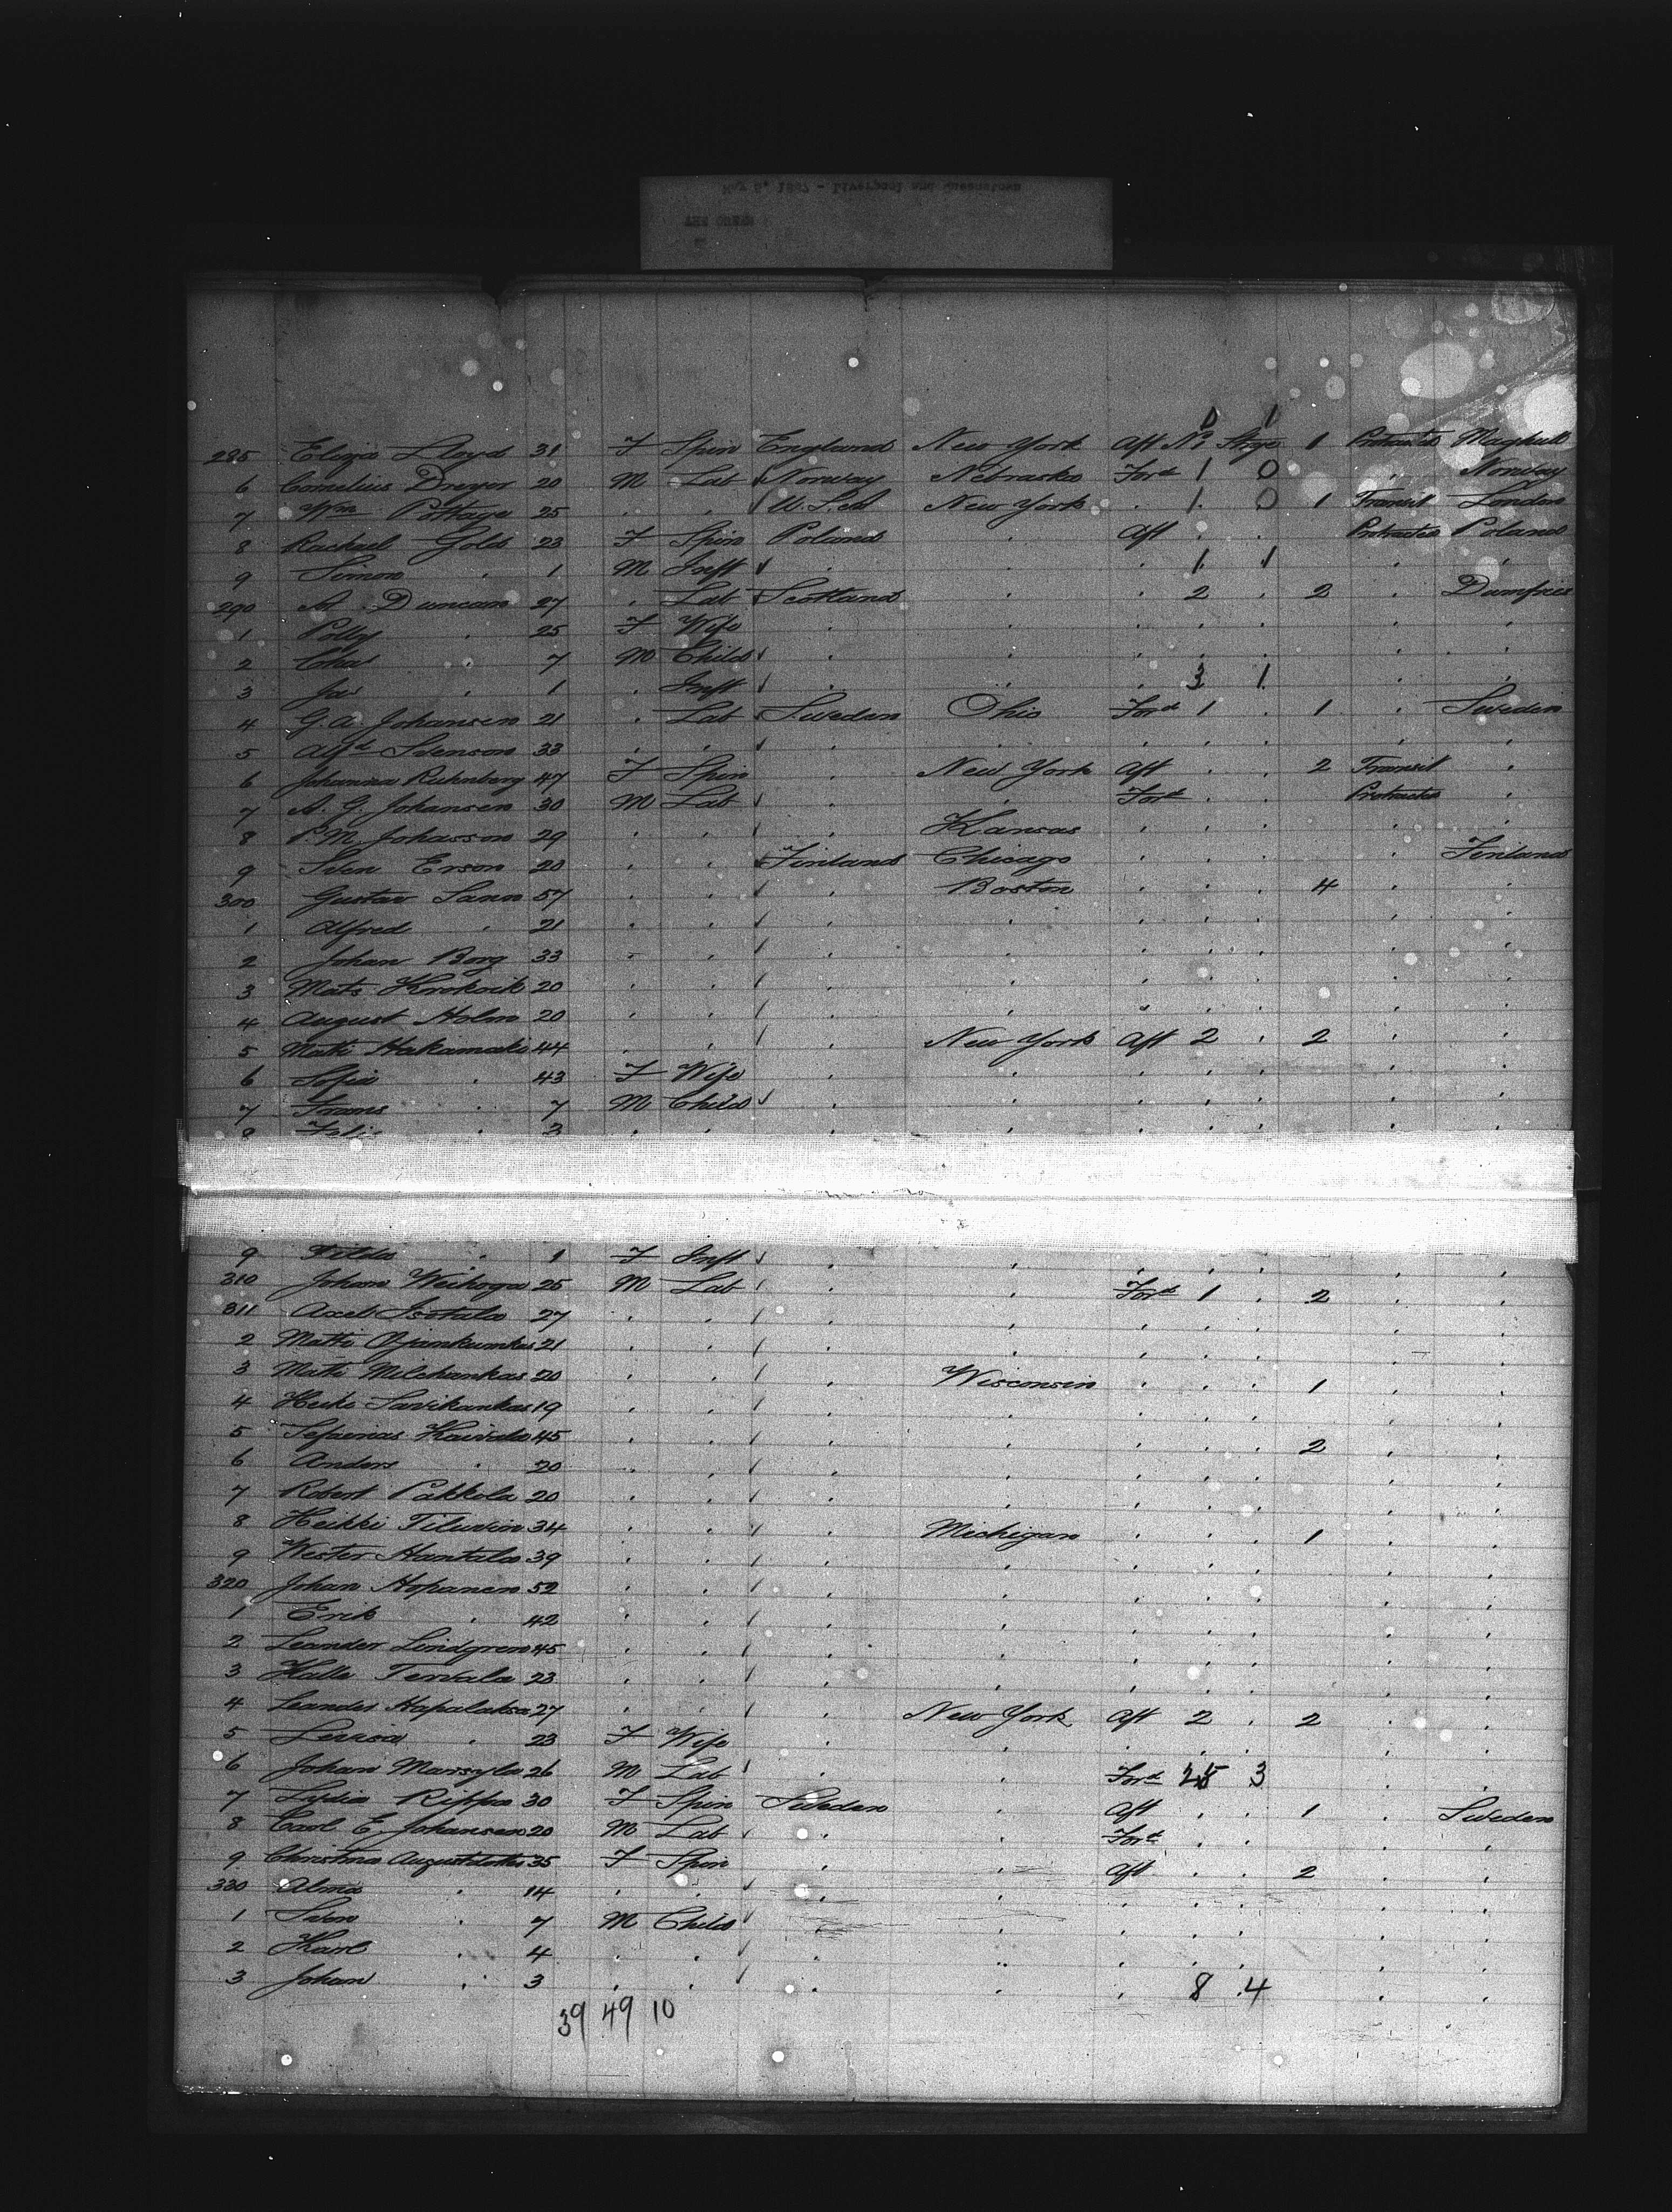 May 5, 1887 - Liverpool and Queenstown
THE QUEEN
0 1
285 Eliza Lloyd 31 F Spin England New York Aft No Stge 1 Protracted Maghull
6 Cornelius Dreyer 20 M Lab Norway Nebraska Ford 1 0 . Norway
7 Wm Pottage 25 . . U.S.A New York . 1 0 1 Transit London
8 Rachael Gold 23 F Spin Poland . Aft . . Protracted Poland
9 Simon . 1 M Inft . . . 1 1 . .
290 A. Duncan 27 . Lab Scotland . . 2 . 2 . Dumfries
1 Polly . 25 F Wife . . . . . . .
2 Chas . 7 M Child . . . . . . .
3 Jas . 1 . Inft . . . 3 1 . .
4 G. A. Johansen 21 . Lab Sweden Ohio Ford 1 . 1 . Sweden
5 Alfd Svenson 33 . . . . . . . . .
6 Johanna Ruhnberg 47 F Spin . New York Aft . . 2 Transit .
7 A. G. Johansen 30 M Lab . . Ford . . Protracted .
8 P. M. Johasson 29 . . . Kansas . . . . .
9 Sven Erson 20 . . Finland Chicago . . . . Finland
300 Gustav Sann 57 . . . Boston . . . 4 . .
1 Alfred . 21 . . . . . . . . .
2 Johan Borg 33 . . . . . . . . .
3 Mats Krokvik 20 . . . . . . . . .
4 August Holm 20 . . . . . . . . .
5 Matti Hakamaki 44 . . . New York Aft 2 . 2 . .
6 Sofia . 43 F Wife . . . . . . .
7 Frans . 7 M Child . . . . . . .
8 . 3 . . . . . . . . .
9 Hilda . 1 F Inft . . . . . . .
310 Johan 25 M Lab . . Ford 1 . 2 . .
311 Axel Isotalo 27 . . . . . . . . .
2 Matti 21 . . . . . . . . .
3 Matti 20 . . . Wisconsin . . . 1 . .
4 19 . . . . . . . . .
5 45 . . . . . . . 2 . .
6 Anders . 20 . . . . . . . . .
7 Robert Pakkola 20 . . . . . . . . .
8 Heikki 34 . . . Michigan . . . 1 . .
9 Wester Hantala 39 . . . . . . . . .
320 Johan Hopanen 52 . . . . . . . . .
1 Erik . 42 . . . . . . . . .
2 Leander Lindgren 45 . . . . . . . . .
3 Kalle Tervala 23 . . . . . . . . .
4 Leander 27 . . . New York Aft 2 . 2 . .
5 Lovisa . 23 F Wife . . . . . . .
6 Johan 26 M Lab . . Ford 3 . .
7 Lydia Rippa 30 F Spin Sweden . Aft . . 1 . Sweden
8 Carl E. Johansen 20 M Lab . . Ford . . . .
9 Christina 35 F Spin . . Aft . . 2 . .
330 Alma . 14 . . . . . . . . .
1 Sven . 7 M Child . . . . . . .
2 Karl . 4 . . . . . . . . .
3 Johan . 3 . . . . . 8 4 . .
39 49 10